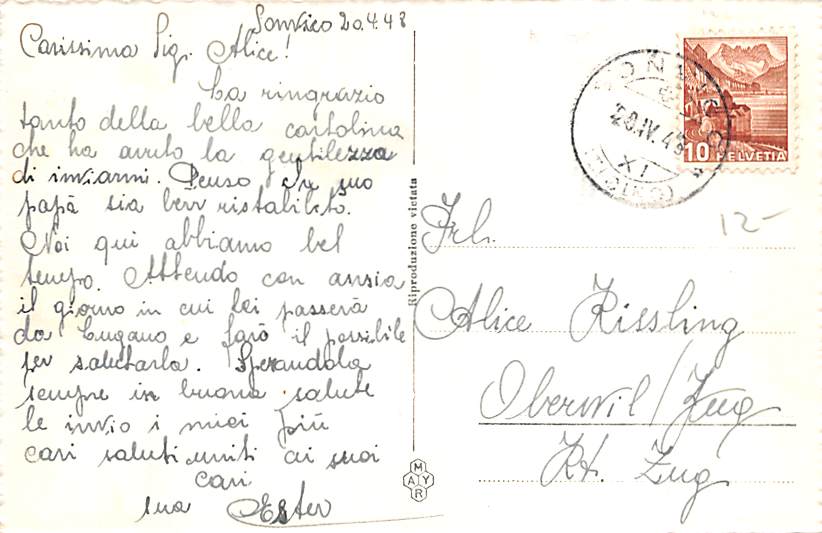 Sonvico 20.4.48
Carissima Sig. Alice!
La ringrazio
tanto della bella cartolina
che ha avuto la gentilezza
di inviarmi. Penso che suo
papà sia ben ristabilito.
Noi qui abbiamo bel
tempo. Attendo con ansia
il giorno in cui lei passerà
da Lugano e farò il possibile
per salutarla. Sperandola
sempre in buona salute
le invio i miei più
cari saluti uniti ai suoi
cari
sua Ester
Riproduzione vietata
MAYR
SONVICO
20.IV.48
XI
(TICINO)
10 HELVETIA
12-
Frl.
Alice Rissling
Oberwil/Zug
Kt. Zug